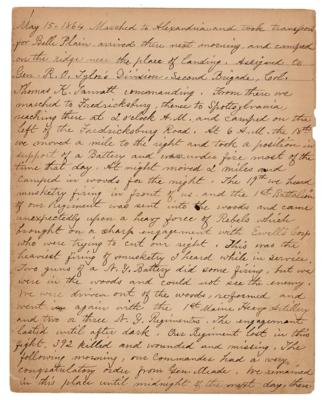 May 15. 1864 Marched to Alexandria and took transport
for Belle Plain arrived there next morning, and camped
on the ridge near the place of landing. Assigned to
Gen. R. O. Tyler's Division. Second Brigade, Col.
Thomas R. Tannatt commanding. From there we
marched to Fredricksburg, thence to Spottsylvania
reaching there at 2 o'clock A.M. and camped on the
left of the Fredricksburg Road. At 6 A.M. the 18th
we moved a mile to the right and took a position in
support of a Battery and was under fire most of the
time that day. At night moved 2 miles and
camped in woods for the night. The 19th we heard
musketry firing in front of us, and the 1st Battalion
of our Regiment was sent into the woods and came
unexpectedly upon a heavy force of Rebels which
brought on a sharp engagement with Ewell's Corp
who were trying to cut our right. This was the
heaviest firing of musketry I heard while in service.
Two guns of a N.Y. Battery did some firing, but we
were in the woods and could not see the enemy.
We were driven out of the woods, reformed and
went in again with the 1st Maine Heavy Artillery
and two or three N.Y. Regiments. The engagement
lasted until after dark. Our Regiment lost in this
fight. 392 killed and wounded and missing. The
following morning, our Commander had a very
congratulatory order from Gen. Meade. We remained
in this place until midnight of the next day, then